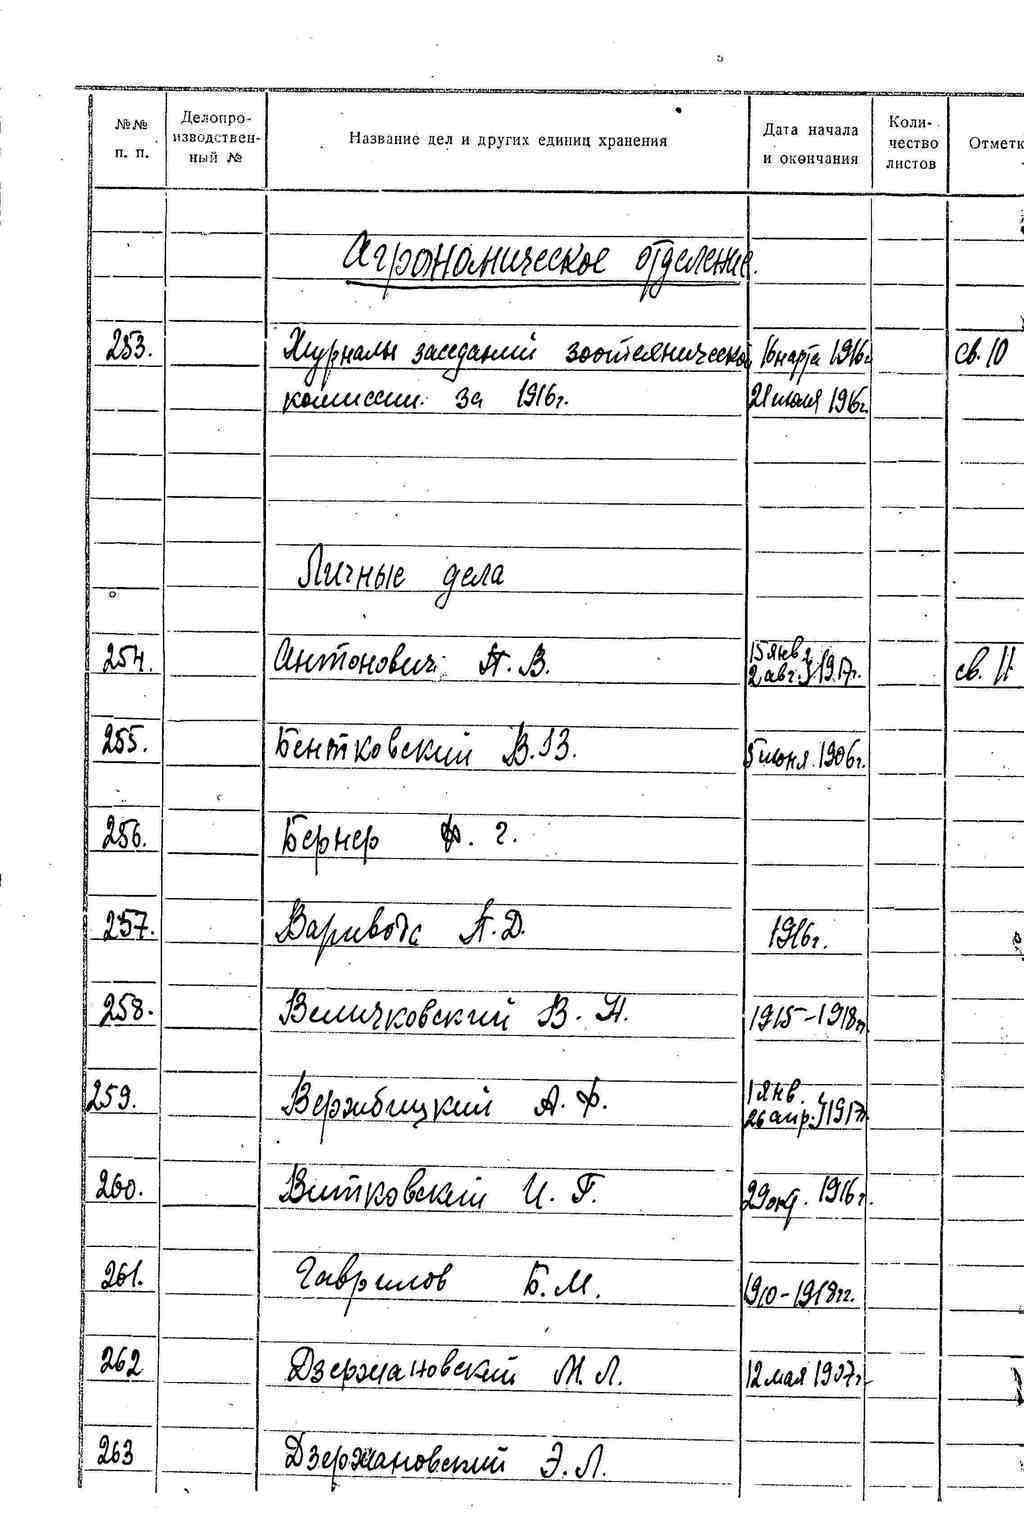 №№ п. п.
Делопро-
изводствен-
ный №
Название дел и других единиц хранения
Дата начала
и окончания
Коли-
чество
листов
Отметк
Агрономическое отделение.
253. Журналы заседаний зоотехнической 16 марта 1916г. св. 10
комиссии за 1916г. 21 июля 1916г.
Личные дела
254. Антонович П. В. 15 янв. 2 авг. } 1917г. св. 11
255. Бентковский В. В. 5 июня 1906г.
256. Бернер Ф. Г.
257. Варивода А. Д. 1916г.
258. Величковский В. Н. 1915-1918гг
259. Вержбицкий А. Ф. 1 янв. 26 апр. } 1917г
260. Витковский И. Г. 29 окт. 1916г.
261. Гаврилов Б. М. 1910-1918гг.
262 Дзержановский М. Л. 12 мая 1907г.
263 Дзержановский Э. Л.